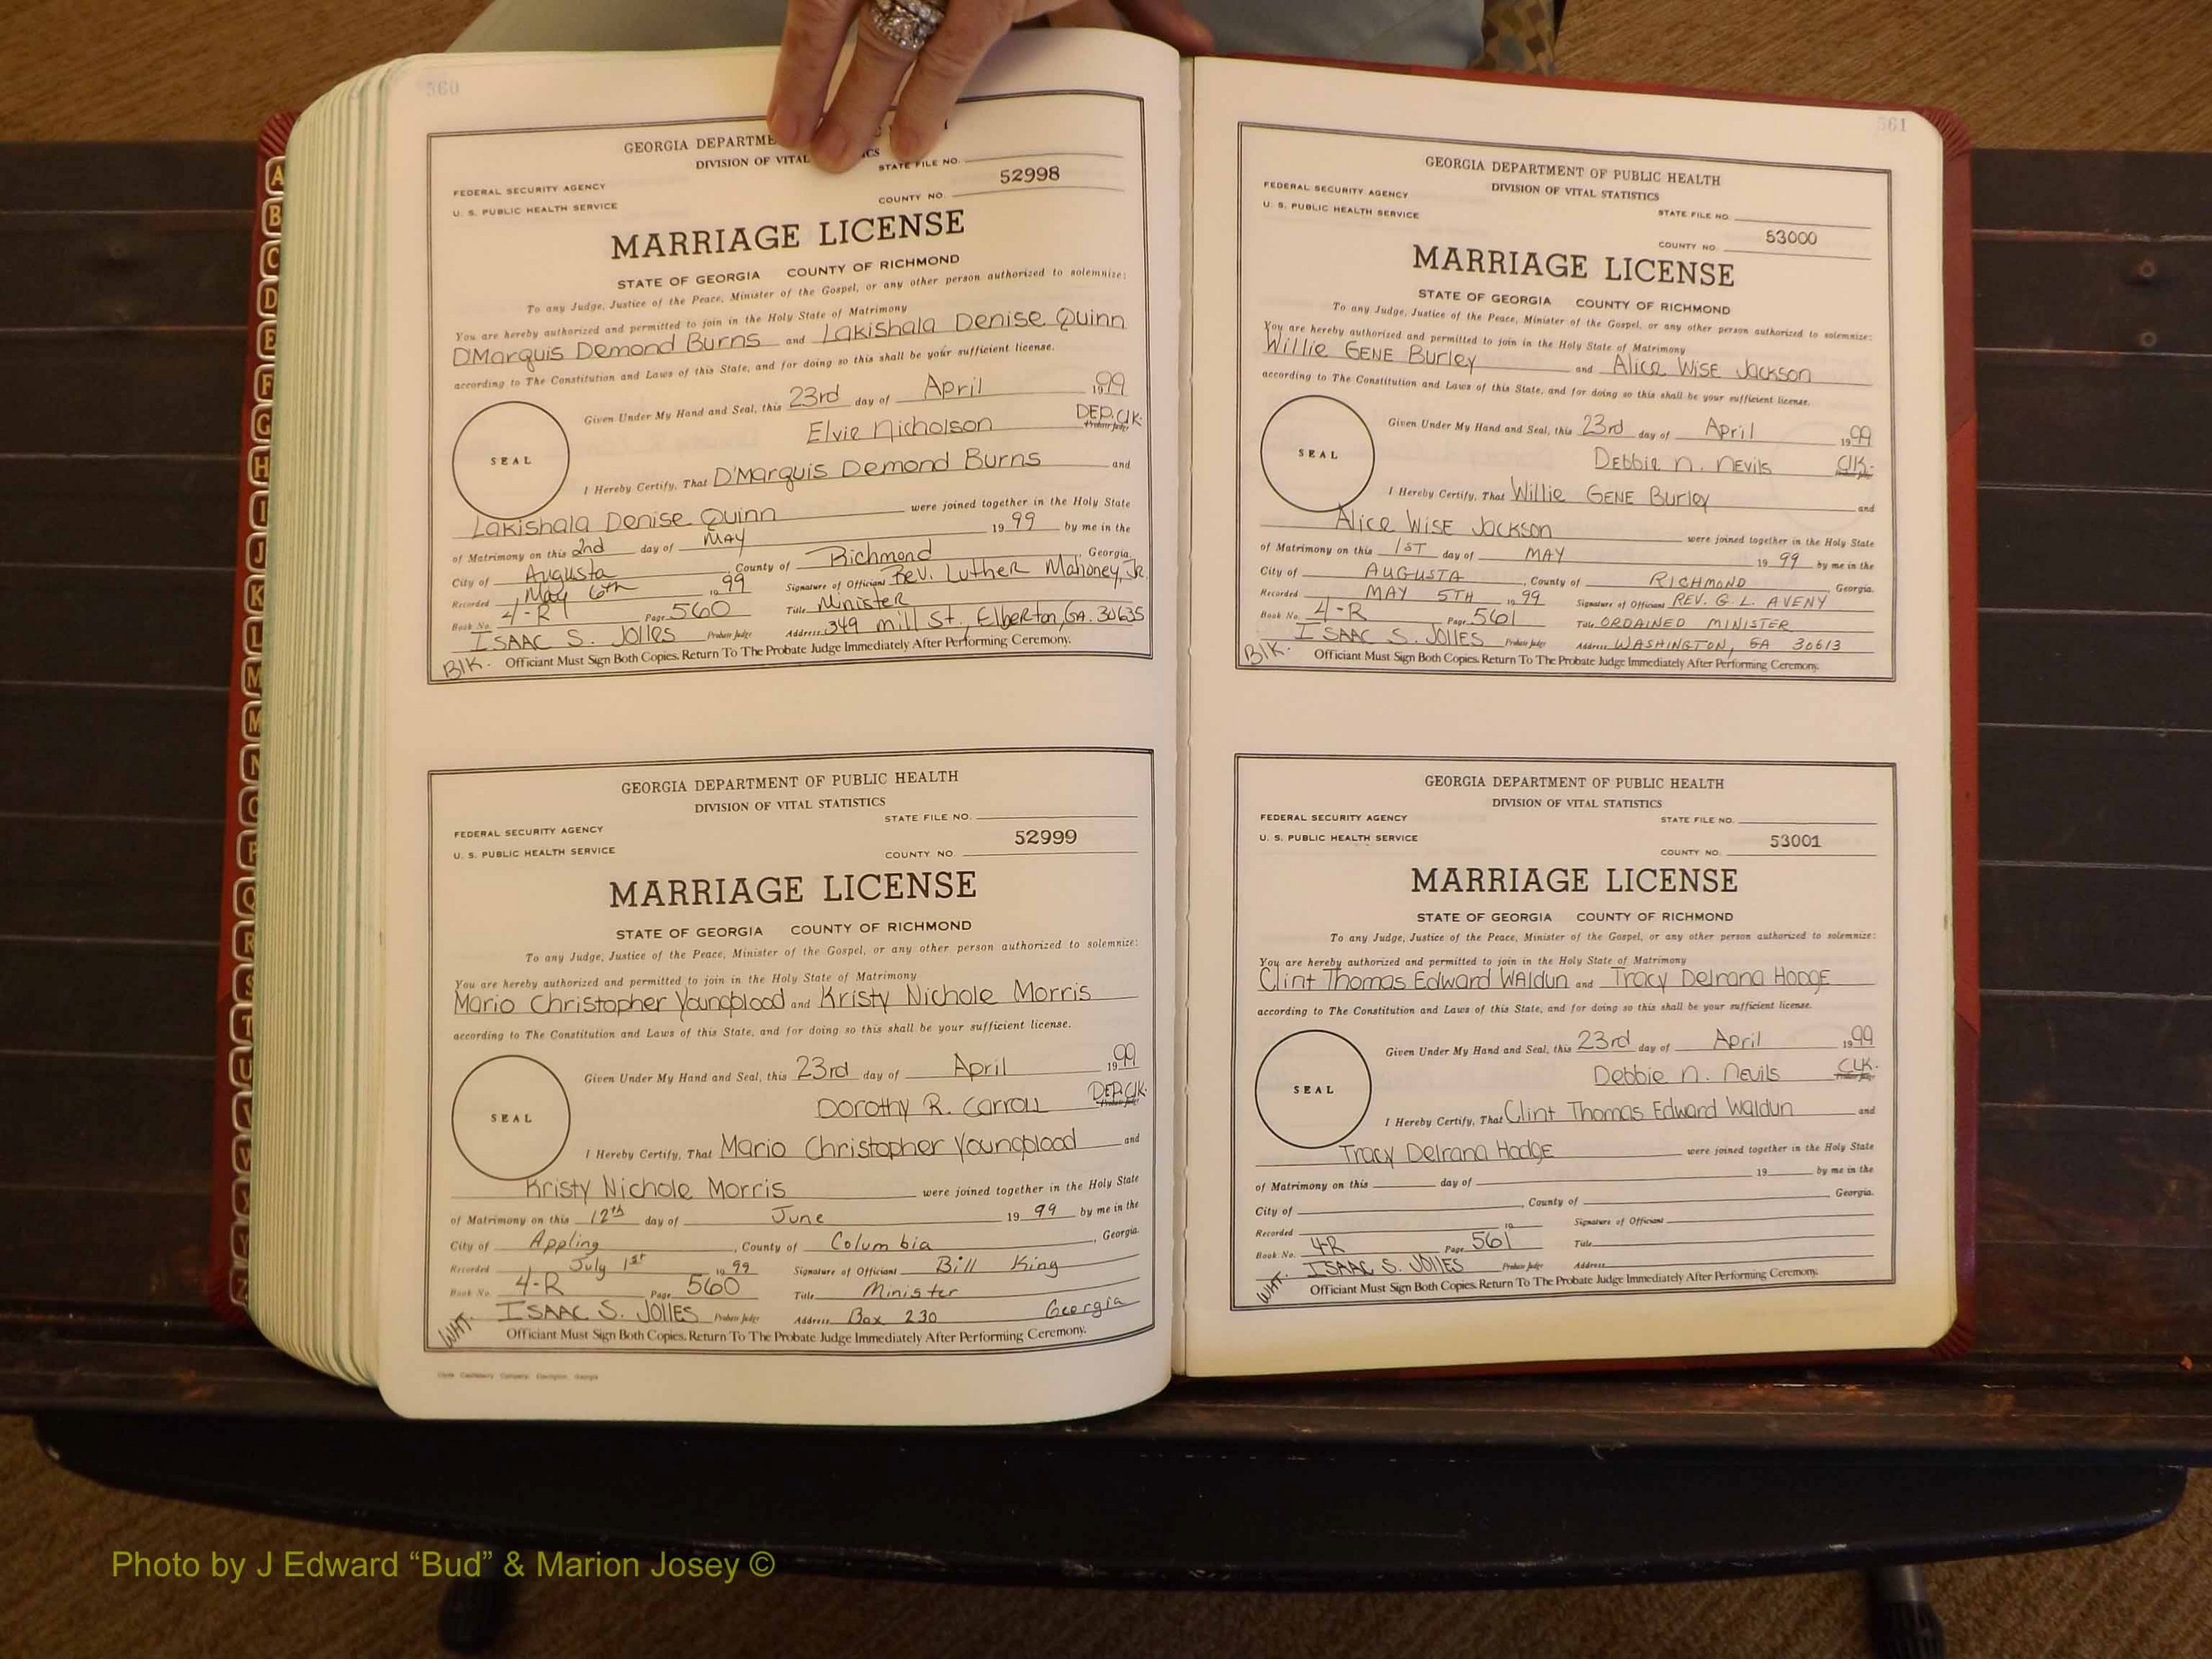 560
GEORGIA DEPARTME
DIVISION OF VITAL
STATE FILE NO.
FEDERAL SECURITY AGENCY
52998
U. S. PUBLIC HEALTH SERVICE
COUNTY NO.
MARRIAGE LICENSE
STATE OF GEORGIA COUNTY OF RICHMOND
To any Judge, Justice of the Peace, Minister of the Gospel, or any other person authorized to solemnize:
You are hereby authorized and permitted to join in the Holy State of Matrimony
DMarquis Demond Burns and Lakishala Denise Quinn
according to The Constitution and Laws of this State, and for doing so this shall be your sufficient license.
Given Under My Hand and Seal, this 23rd day of April 1999
Elvie Nicholson DEP. Clk. Probate Judge
SEAL
I Hereby Certify, That D'Marquis Demond Burns and
Lakishala Denise Quinn were joined together in the Holy State
of Matrimony on this 2nd day of MAY 19 99 by me in the
City of Augusta, County of Richmond, Georgia.
Recorded May 6th 19 99 Signature of Officiant Rev. Luther Mahoney, Jr.
Book No. 4-R Page 560 Title Minister
ISAAC S. JOLLES Probate Judge Address 349 Mill St., Elberton, GA. 30635
Blk. Officiant Must Sign Both Copies. Return To The Probate Judge Immediately After Performing Ceremony.
GEORGIA DEPARTMENT OF PUBLIC HEALTH
DIVISION OF VITAL STATISTICS
STATE FILE NO.
FEDERAL SECURITY AGENCY
52999
U. S. PUBLIC HEALTH SERVICE
COUNTY NO.
MARRIAGE LICENSE
STATE OF GEORGIA COUNTY OF RICHMOND
To any Judge, Justice of the Peace, Minister of the Gospel, or any other person authorized to solemnize:
You are hereby authorized and permitted to join in the Holy State of Matrimony
Mario Christopher Youngblood and Kristy Nichole Morris
according to The Constitution and Laws of this State, and for doing so this shall be your sufficient license.
Given Under My Hand and Seal, this 23rd day of April 1999
Dorothy R. Carroll DEP. Clk. Probate Judge
SEAL
I Hereby Certify, That Mario Christopher Youngblood and
Kristy Nichole Morris were joined together in the Holy State
of Matrimony on this 12th day of June 19 99 by me in the
City of Appling, County of Columbia, Georgia.
Recorded July 1st 19 99 Signature of Officiant Bill King
Book No. 4-R Page 560 Title Minister
ISAAC S. JOLLES Probate Judge Address Box 230 Georgia
WHT. Officiant Must Sign Both Copies. Return To The Probate Judge Immediately After Performing Ceremony.
561
GEORGIA DEPARTMENT OF PUBLIC HEALTH
DIVISION OF VITAL STATISTICS
FEDERAL SECURITY AGENCY
STATE FILE NO.
U. S. PUBLIC HEALTH SERVICE
COUNTY NO. 53000
MARRIAGE LICENSE
STATE OF GEORGIA COUNTY OF RICHMOND
To any Judge, Justice of the Peace, Minister of the Gospel, or any other person authorized to solemnize:
You are hereby authorized and permitted to join in the Holy State of Matrimony
Willie GENE Burley and Alice Wise Jackson
according to The Constitution and Laws of this State, and for doing so this shall be your sufficient license.
Given Under My Hand and Seal, this 23rd day of April 1999
Debbie N. Nevils Clk.
SEAL
I Hereby Certify, That Willie GENE Burley and
Alice Wise Jackson were joined together in the Holy State
of Matrimony on this 1ST day of MAY 19 99 by me in the
City of AUGUSTA, County of RICHMOND Georgia.
Recorded MAY 5TH 19 99 Signature of Officiant REV. G. L. AVENY
Book No. 4-R Page 561 Title ORDAINED MINISTER
ISAAC S. JOLLES Probate Judge Address WASHINGTON, GA 30613
Blk. Officiant Must Sign Both Copies. Return To The Probate Judge Immediately After Performing Ceremony.
GEORGIA DEPARTMENT OF PUBLIC HEALTH
DIVISION OF VITAL STATISTICS
FEDERAL SECURITY AGENCY
STATE FILE NO.
U. S. PUBLIC HEALTH SERVICE
53001
COUNTY NO.
MARRIAGE LICENSE
STATE OF GEORGIA COUNTY OF RICHMOND
To any Judge, Justice of the Peace, Minister of the Gospel, or any other person authorized to solemnize:
You are hereby authorized and permitted to join in the Holy State of Matrimony
Clint Thomas Edward Waldun and Tracy Delrana Hodge
according to The Constitution and Laws of this State, and for doing so this shall be your sufficient license.
Given Under My Hand and Seal, this 23rd day of April 1999
Debbie N. Nevils Clk. Probate Judge
SEAL
I Hereby Certify, That Clint Thomas Edward Waldun and
Tracy Delrana Hodge were joined together in the Holy State
of Matrimony on this day of 19 by me in the
City of , County of Georgia.
Recorded 19 Signature of Officiant
Book No. 4-R Page 561 Title
ISAAC S. JOLLES Probate Judge Address
WHT. Officiant Must Sign Both Copies. Return To The Probate Judge Immediately After Performing Ceremony.
A
B
C
D
E
F
G
H
I
J
K
L
M
M
N
O
P
Q
R
S
T
U
V
W
X
Y
Z
Photo by J Edward “Bud” & Marion Josey ©